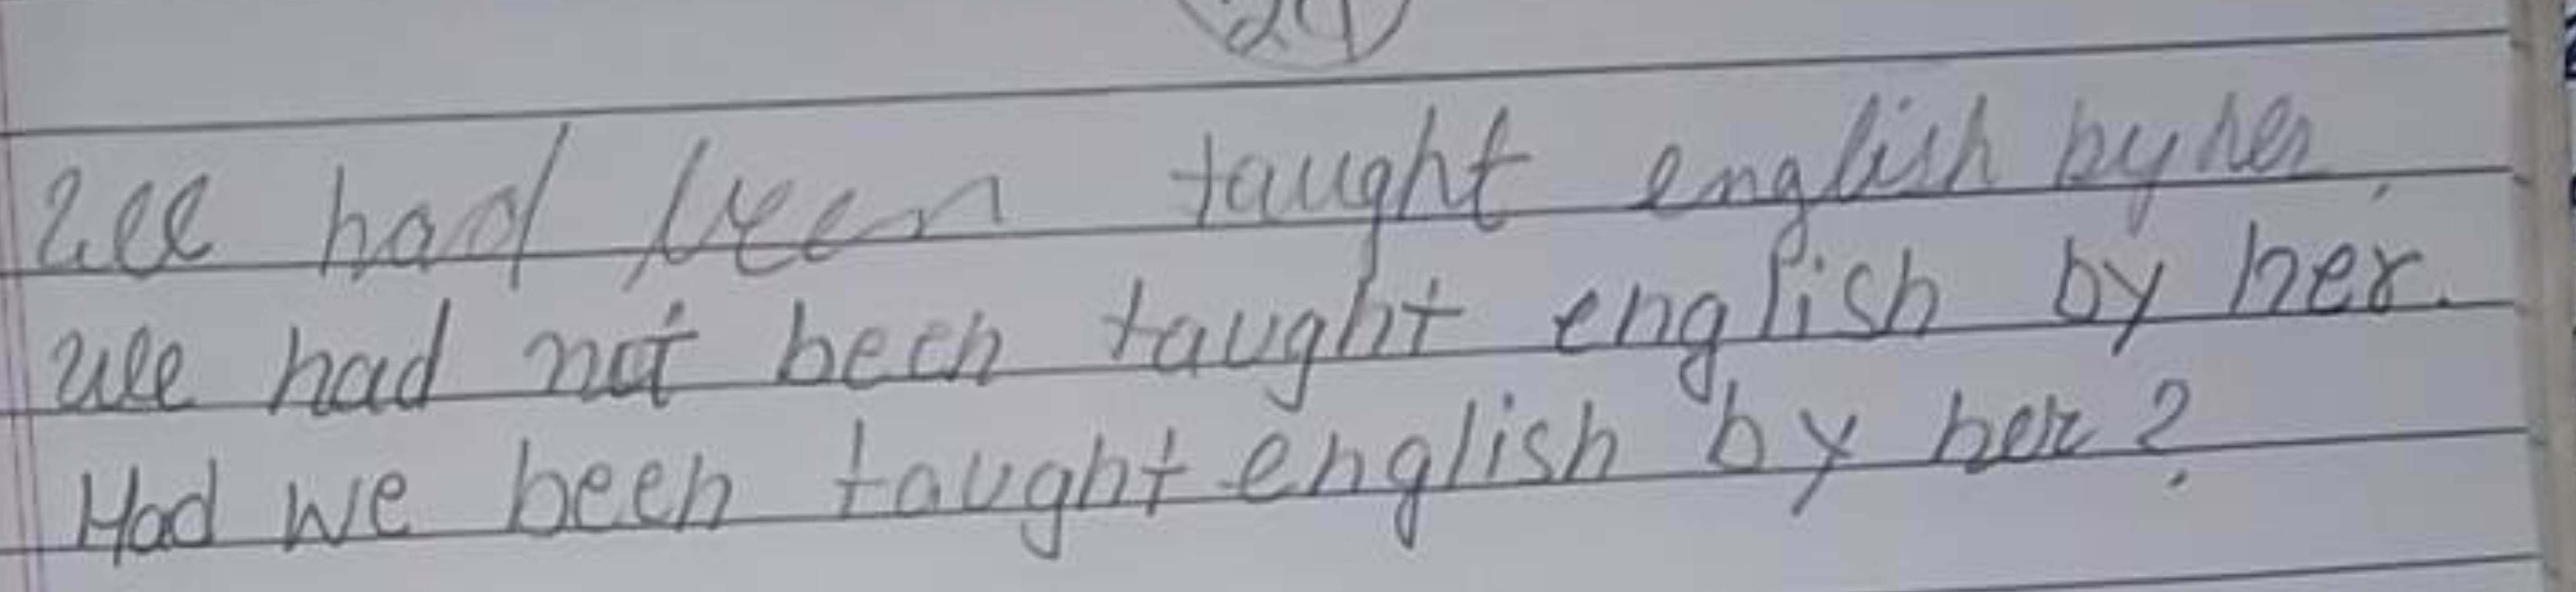 We had been taught english by her.
We had not been taught english by her.
Had we been taught english by her?